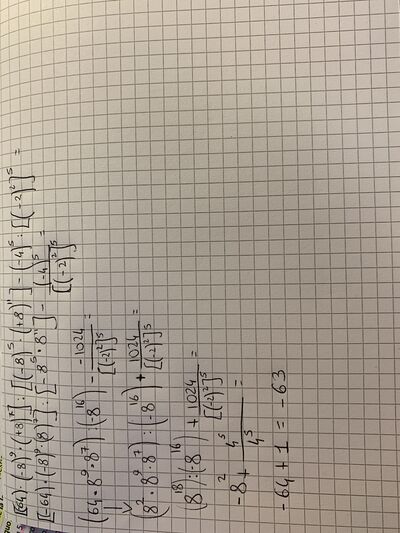 [64·(-8)⁹·(+8)⁷] : [(-8)⁵·(+8)¹¹] - (-4)⁵ : [(-2)²]⁵ =
[-64)·(-8)⁹(8)⁷] : [-8⁵·8¹¹] - (-4)⁵/[(-2)²]⁵ =
(64·8⁹·8⁷) : (-8¹⁶) - -1024/[(-2)²]⁵ =
(8²·8⁹·8⁷) : (-8¹⁶) + 1024/[(-2)²]⁵ =
(8¹⁸) : (-8¹⁶) + 1024/[(-2)²]⁵ =
-8² + 4⁵/4⁵ =
-64 + 1 = -63